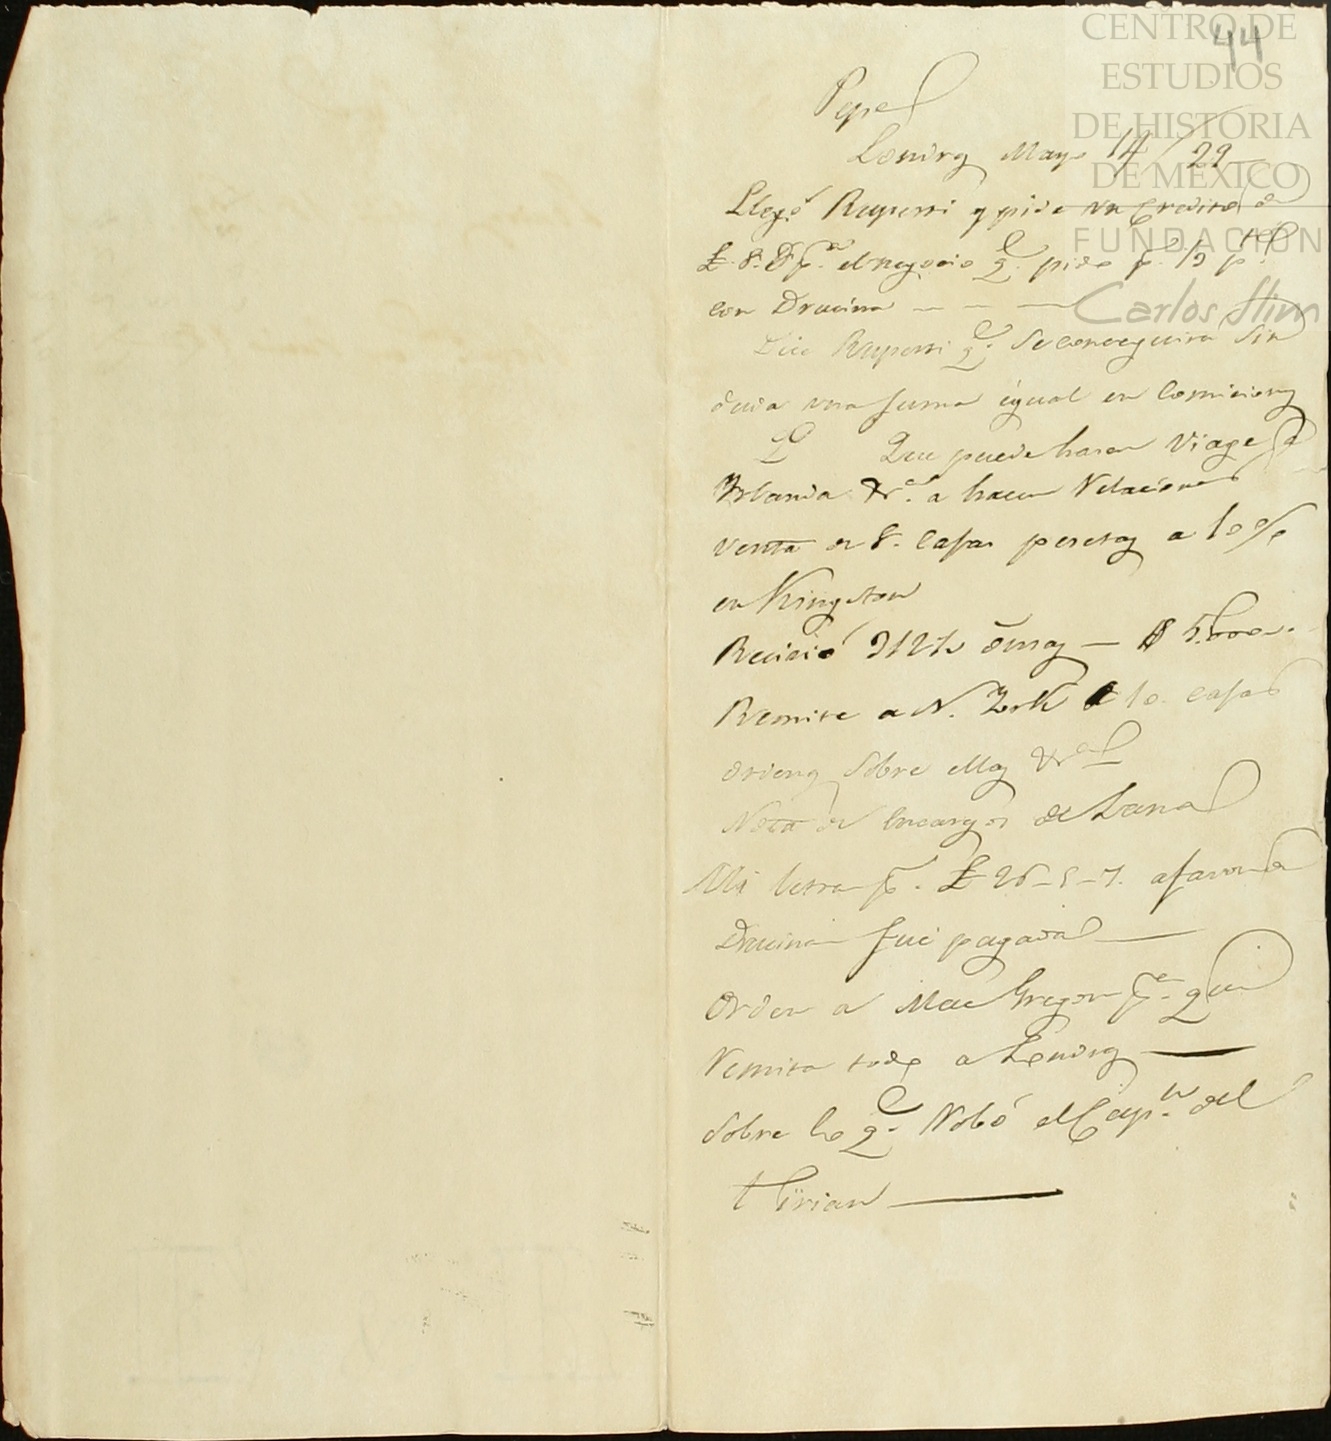 CENTRO DE
ESTUDIOS
DE HISTORIA
DE MÉXICO
FUNDACIÓN
Carlos Slim
44
Pepe
Londres Mayo 14/29
Llegó Ruperti y pide un Credito de
£ 8. el negocio q.e pide p.r
con Dracina — — —
Dice Ruperti q.e se conceguira sin
duda una suma igual en Comiciones
Que puede hacer Viage a
Irlanda &r.a a hacer Relaciones
Venta de 8. Cajas pesetas a 10%
en Kingston
Recivió 312½ onzas — $ 5.000.
Remite a N. York 10. cajas
ordenes sobre ellas &ra
Nota de encargos de Lana
Mi letra p.r £ 26-5-7. a favor de
Dracina fue pagada —
Orden a Mac Gregor p.a que
remita todo a Londres —
Sobre lo q.e Robó el Cap.n del